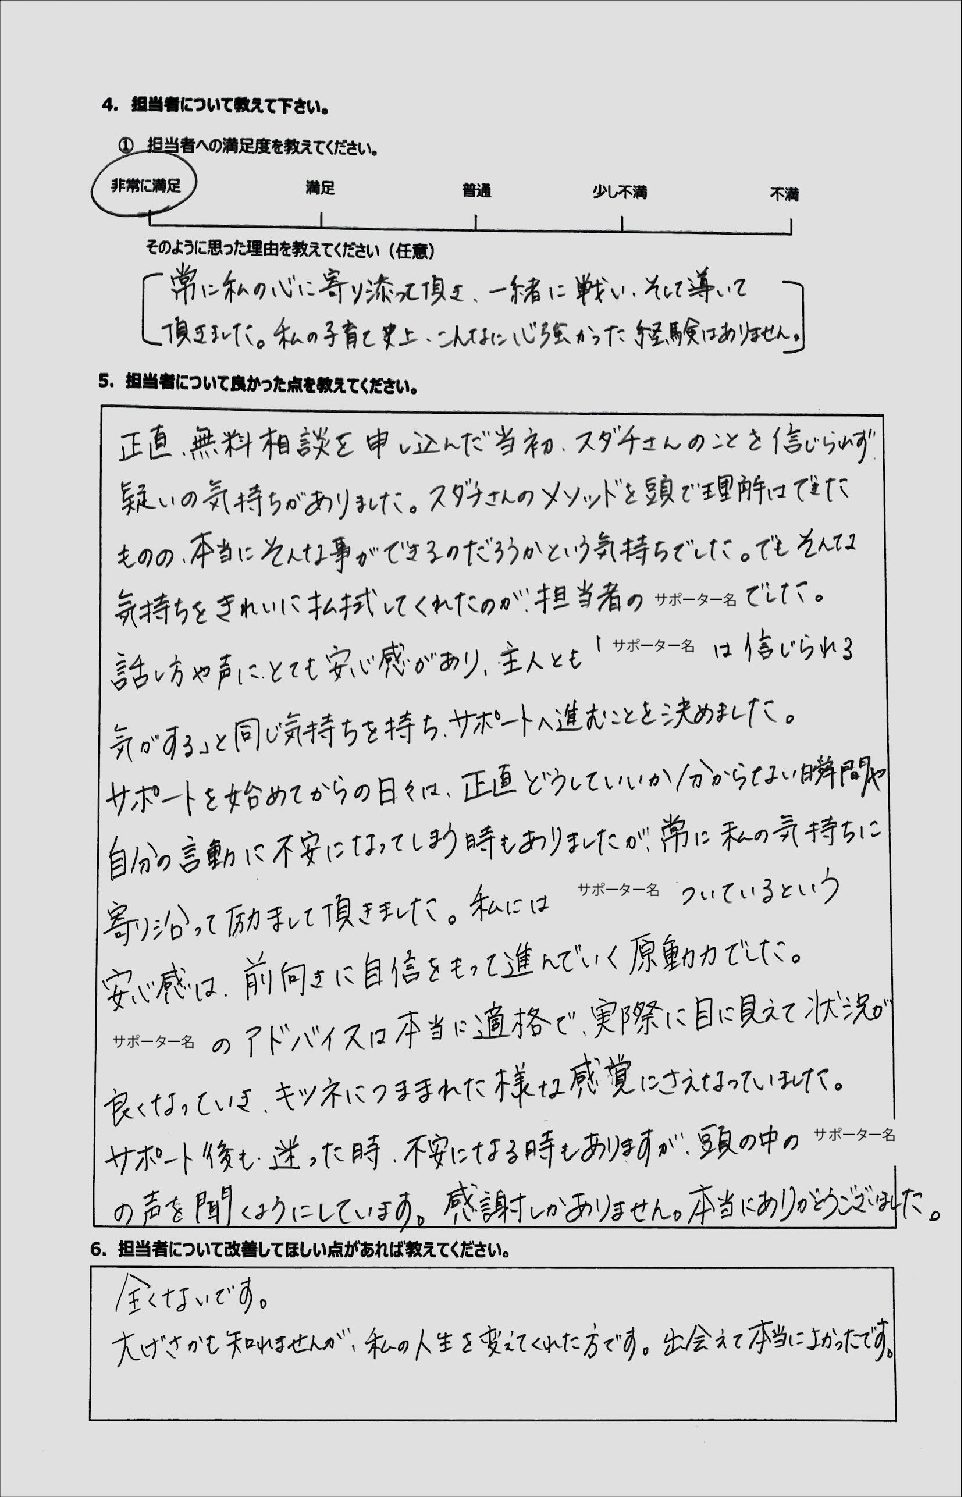 4. 担当者について教えて下さい。
① 担当者への満足度を教えてください。
非常に満足 満足 普通 少し不満 不満
そのように思った理由を教えてください（任意）
常に私の心に寄り添って頂き、一緒に戦い、そして導いて
頂きました。私の子育て史上、こんなに心強かった経験はありません。
5. 担当者について良かった点を教えてください。
正直、無料相談を申し込んだ当初、スダチさんのことを信じられず、
疑いの気持ちがありました。スダチさんのメソッドを頭で理解はできた
ものの、本当にそんな事ができるのだろうかという気持ちでした。でもそんな
気持ちをきれいに払拭してくれたのが、担当者の サポーター名 でした。
話し方や声にとても安心感があり、主人とも「 サポーター名 は信じられる
気がする」と同じ気持ちを持ち、サポートへ進むことを決めました。
サポートを始めてからの日々は、正直どうしていいか分からない瞬間や
自分の言動に不安になってしまう時もありましたが、常に私の気持ちに
寄り沿って励まして頂きました。私には サポーター名 ついているという
安心感は、前向きに自信をもって進んでいく原動力でした。
サポーター名 のアドバイスは本当に適格で、実際に目に見えて状況が
良くなっていき、キツネにつままれた様な感覚にさえなっていました。
サポート後も、迷った時、不安になる時もありますが、頭の中の サポーター名
の声を聞くようにしています。感謝しかありません。本当にありがとうございました。
6. 担当者について改善してほしい点があれば教えてください。
全くないです。
大げさかも知れませんが、私の人生を変えてくれた方です。出会えて本当によかったです。